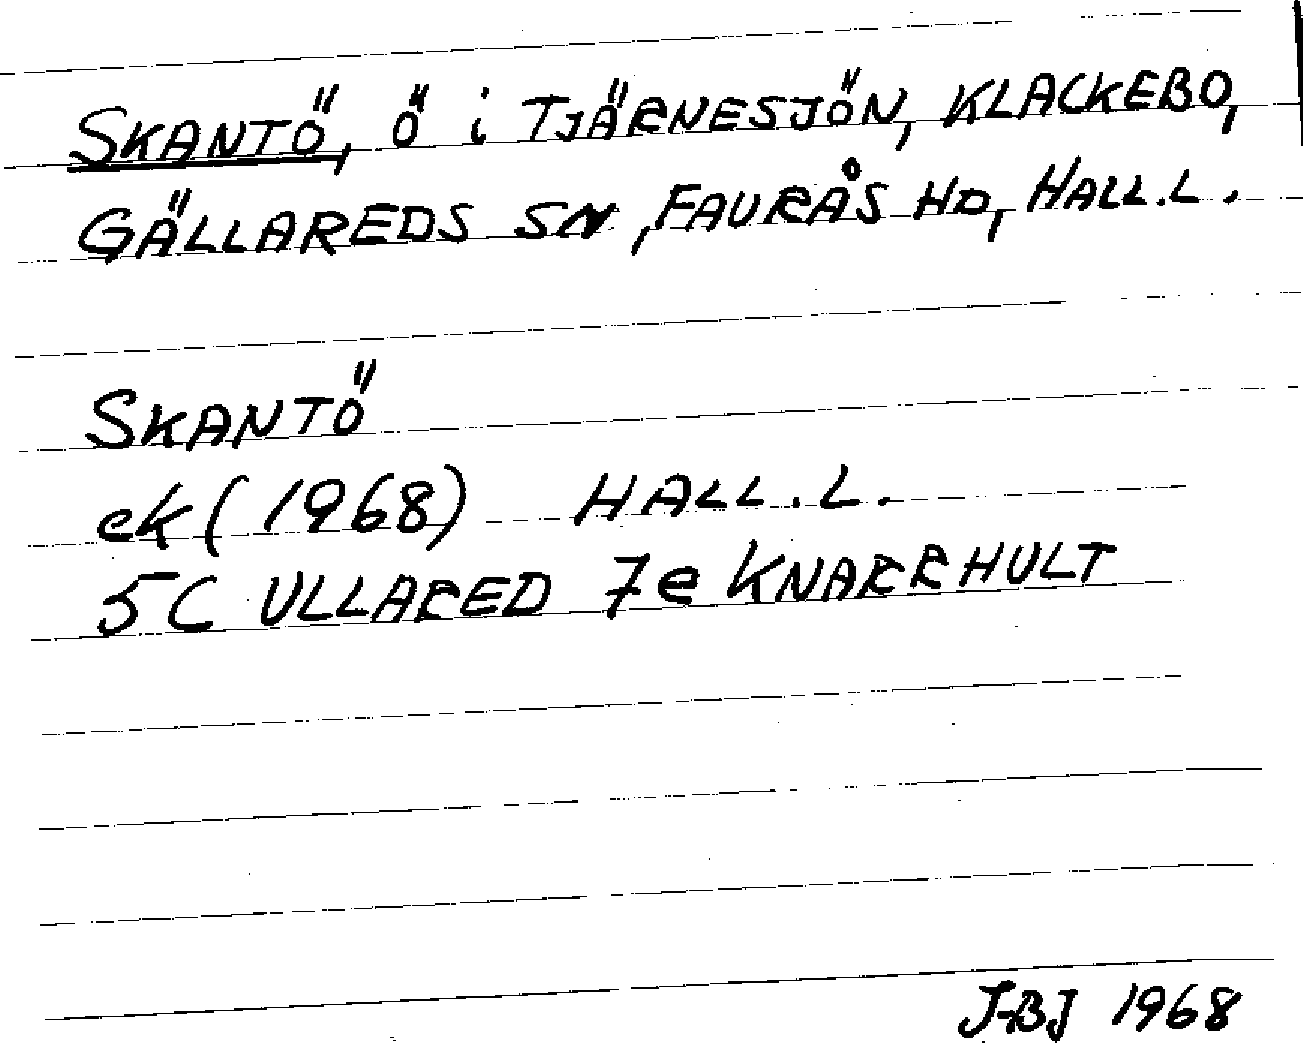 SKANTÖ, Ö i TJÄRNESJÖN, KLACKEBO,
GÄLLAREDS SN, FAURÅS HD, HALL.L.
SKANTÖ
ek (1968) HALL.L.
5C ULLARED 7e KNARRHULT
J-BJ 1968